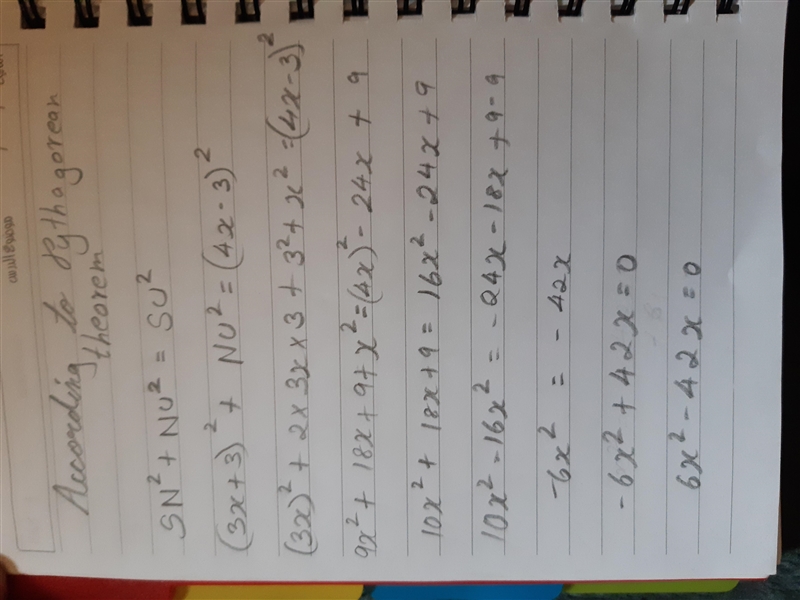 According to Pythagorean
theorem
SN² + NU² = SU²
(3x+3)² + NU² = (4x-3)²
(3x)² + 2×3x×3 + 3² + x² = (4x-3)²
9x² + 18x + 9 + x² = (4x)² - 24x + 9
10x² + 18x + 9 = 16x² - 24x + 9
10x² - 16x² = - 24x - 18x + 9 - 9
-6x² = - 42x
-6x² + 42x = 0
6x² - 42x = 0